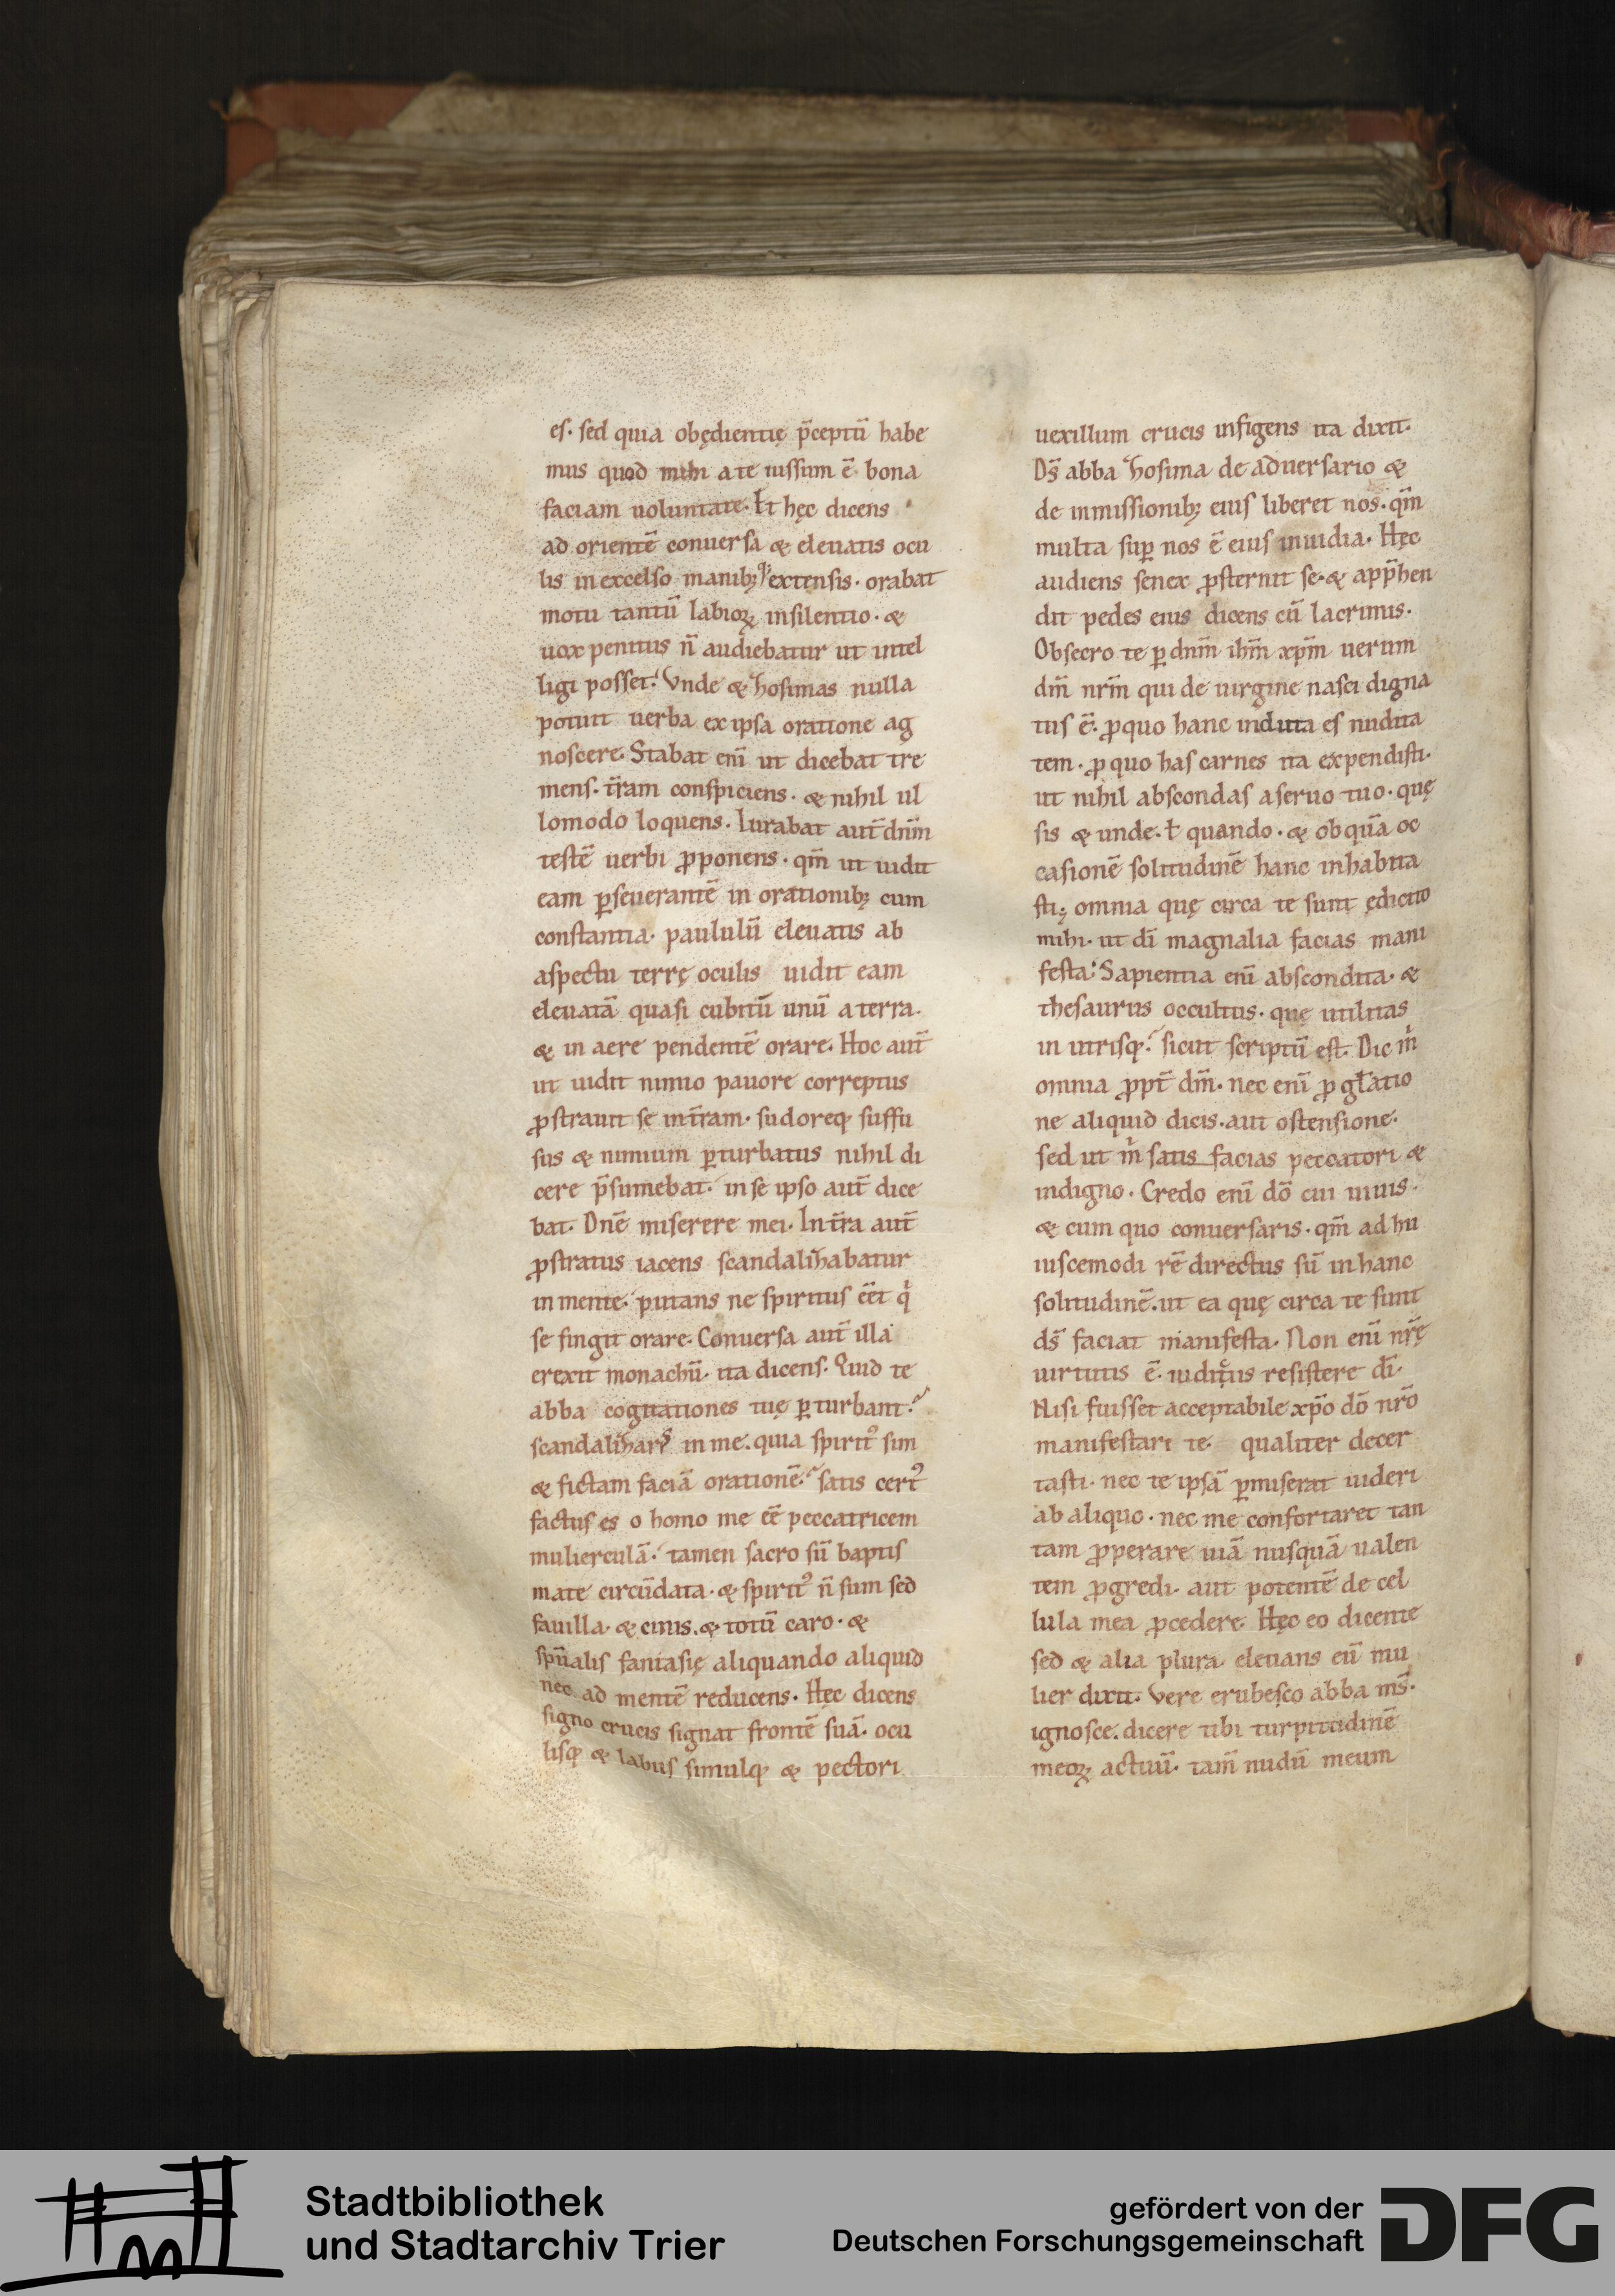 es. sed quia obędientię p̄ceptū habe
mus quod mihi a te iussum ē bona
faciam uoluntate. Et hęc dicens
ad orientē conuersa & eleuatis ocu
lis in excelso manibꝫ extensis. orabat
motu tantū labioꝝ in silentio. &
uox penitus n̄ audiebatur ut intel
ligi posset. Vnde & Zosimas nulla
potuit uerba ex ipsa oratione ag
noscere. Stabat eni ̄ ut dicebat tre
mens. t̄ram conspiciens. & nihil ul
lomodo loquens. Iurabat aut̄ dn̄m
testē uerbi ꝓponens. qm̄ ut uidit
eam ꝑseuerantē in orationibꝫ cum
constantia. paululū eleuatis ab
aspectu terrę oculis uidit eam
eleuatā quasi cubitū unū a terra.
& in aere pendentē orare. Hoc aut̄
ut uidit nimio pauore correptus
ꝓstrauit se in t̄ram. sudoreq; suffu
sus & nimium ꝑturbatus nihil di
cere p̄sumebat. in se ipso aut̄ dice
bat. Dn̄e miserere mei. In t̄ra aut̄
ꝓstratus iacens scandalizabatur
in mente. putans ne spiritus ēet qͥ
se fingit orare. Conuersa aut̄ illa
erexit monachū. ita dicens. Quid te
abba cogitationes tuę ꝑturbant?
scandalizarꝭ in me. quia spiritꝰ sim
& fictam faciā orationē? satis certꝰ
factus es o homo me ēē peccatricem
mulierculā. tamen sacro sū baptis
mate circūdata. & spiritꝰ n̄ sum sed
fauilla. & cinis. & totū caro. &
spūalis fantasię aliquando aliquid
nec ad mentē reducens. Hęc dicens
signo crucis signat frontē suā. ocu
lisq; & labiis simulq; & pectori
uexillum crucis infigens ita dixit.
Ds̄ abba Zosima de aduersario &
de inmissionibꝫ eius liberet nos. qm̄
multa suꝑ nos ē eius inuidia. Hęc
audiens senex ꝓsternit se. & app̄hen
dit pedes eius dicens cū lacrimis.
Obsecro te ꝑ dnm̄ ihm̄ xpm̄ uerum
dm̄ nrm̄ qui de uirgine nasci digna
tus ē. ꝓ quo hanc induta es nudita
tem. ꝓ quo has carnes ita expendisti.
ut nihil abscondas a seruo tuo. quę
sis & unde. ł quando. & ob quā oc
casionē solitudinē hanc inhabita
sti; omnia quę circa te sunt ędicito
mihi. ut dī magnalia facias mani
festa. Sapientia eni ̄ abscondita. &
thesaurus occultus. quę utilitas
in utrisq;? sicut scriptū est. Dic m̊
omnia ꝓpt̄ dm̄. nec eni ̄ ꝓ gl̄atio
ne aliquid dicis. aut ostensione.
sed ut m̊ satis facias peccatori &
indigno. Credo eni ̄ dō cui uiuis.
& cum quo conuersaris. qm̄ ad hu
iuscemodi rē directus sū in hanc
solitudinē. ut ea quę circa te sunt
ds̄ faciat manifesta. Non eni ̄ nr̄ę
uirtutis ē. iuditiis resistere dī.
Nisi fuisset acceptabile xpō dō nrō
manifestari te. qualiter decer
tasti. nec te ipsā ꝑmiserat uideri
ab aliquo. nec me confortaret tan
tam ꝓperare uiā nusquā ualen
tem ꝓgredi. aut potentē de cel
lula mea ꝓcedere. Hęc eo dicente
sed & alia plura. eleuans eū mu
lier dixit. Vere erubesco abba ms̄.
ignosce. dicere tibi turpitudinē
meoꝝ actuū. tam̄ nudū meum
Stadtbibliothek
und Stadtarchiv Trier
gefördert von der
Deutschen Forschungsgemeinschaft
DFG